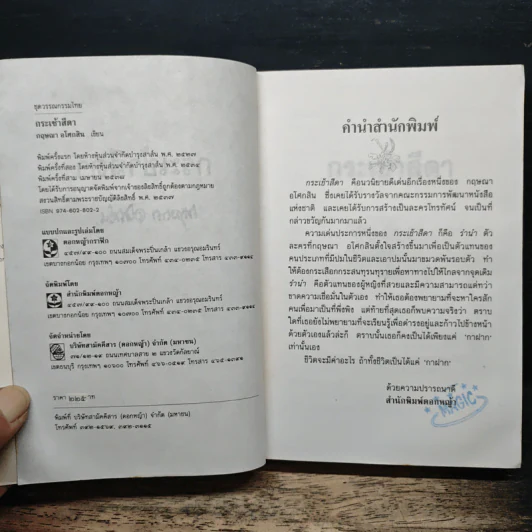 ชุดวรรณกรรมไทย
กระเช้าสีดา
กฤษณา อโศกสิน เขียน
พิมพ์ครั้งแรก โดยห้างหุ้นส่วนจำกัดบำรุงสาส์น พ.ศ. ๒๕๑๗
พิมพ์ครั้งที่สอง โดยห้างหุ้นส่วนจำกัดบำรุงสาส์น พ.ศ. ๒๕๓๔
พิมพ์ครั้งที่สาม เมษายน ๒๕๓๘
โดยได้รับการอนุญาตจัดพิมพ์จากเจ้าของลิขสิทธิ์ถูกต้องตามกฎหมาย
สงวนสิทธิ์ตามพระราชบัญญัติลิขสิทธิ์ พ.ศ. ๒๕๓๗
ISBN 974-602-802-2
แบบปกและรูปเล่มโดย
ดอกหญ้ากราฟิก
ถนนสมเด็จพระปิ่นเกล้า แขวงอรุณอมรินทร์
เขตบางกอกน้อย กรุงเทพฯ ๑๐๗๐๐
จัดพิมพ์โดย
สำนักพิมพ์ดอกหญ้า
ถนนสมเด็จพระปิ่นเกล้า แขวงอรุณอมรินทร์
เขตบางกอกน้อย กรุงเทพฯ ๑๐๗๐๐
จัดจำหน่ายโดย
บริษัทสามัคคีสาร (ดอกหญ้า) จำกัด (มหาชน)
ถนนเทศบาลสาย ๒ แขวงวัดกัลยาณ์
เขตธนบุรี กรุงเทพฯ ๑๐๖๐๐
ราคา ๒๒๕ บาท
พิมพ์ที่ บริษัทสามัคคีสาร (ดอกหญ้า) จำกัด (มหาชน)
คำนำสำนักพิมพ์
กระเช้าสีดา คือนวนิยายดีเด่นอีกเรื่องหนึ่งของ กฤษณา
อโศกสิน ซึ่งเคยได้รับรางวัลจากคณะกรรมการพัฒนาหนังสือ
แห่งชาติ และเคยได้รับการสร้างเป็นละครโทรทัศน์ จนเป็นที่
กล่าวขวัญกันมากมาแล้ว
ความเด่นประการหนึ่งของ กระเช้าสีดา ก็คือ รำนำ ตัว
ละครที่กฤษณา อโศกสินตั้งใจสร้างขึ้นมาเพื่อเป็นตัวแทนของ
คนประเภทที่มีปมในชีวิตและเอาปมนั้นมาผูกมวดพันรอบตัว ทำ
ให้ต้องกระเสือกกระสนทุรนทุรายเพื่อหาทางไปให้ไกลจากจุดเดิม
รำนำ คือตัวแทนของผู้หญิงที่สวยและมีความสามารถแต่ทว่า
ขาดความเชื่อมั่นในตัวเอง ทำให้เธอต้องพยายามที่จะหาใครสัก
คนเพื่อมาเป็นที่พึ่งพิง แต่ท้ายที่สุดเธอก็พบความจริงว่า ตราบ
ใดที่เธอยังไม่พยายามที่จะเรียนรู้เพื่อดำรงอยู่และก้าวไปข้างหน้า
ด้วยตัวเองแล้วล่ะก็ ตราบนั้นเธอก็คงเป็นได้เพียงแค่ 'กาฝาก'
เท่านั้นเอง
ชีวิตจะมีค่าอะไร ถ้าทั้งชีวิตเป็นได้แค่ 'กาฝาก'
ด้วยความปรารถนาดี
สำนักพิมพ์ดอกหญ้า
MAGIC